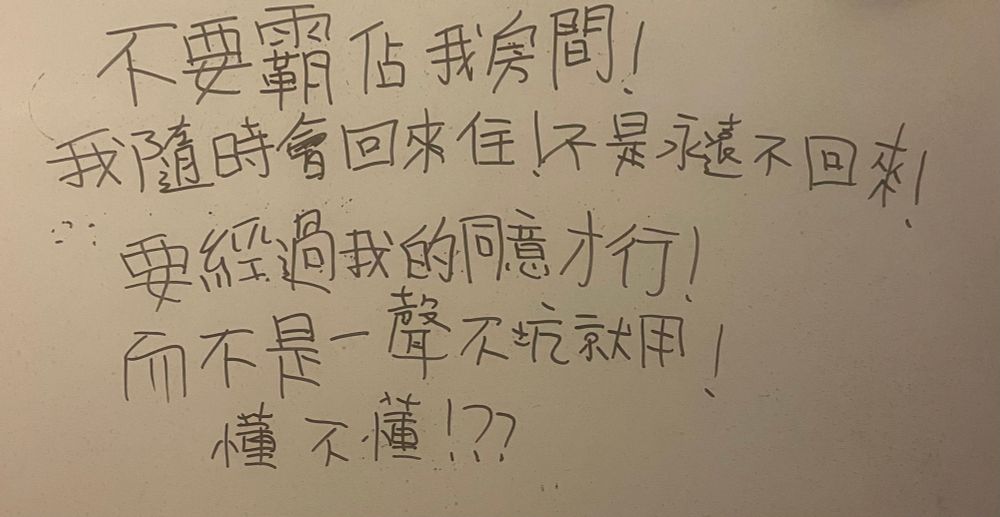 不要霸佔我房間!
我隨時會回來住!不是永遠不回來!
要經過我的同意才行!
而不是一聲不坑就用!
懂不懂!??